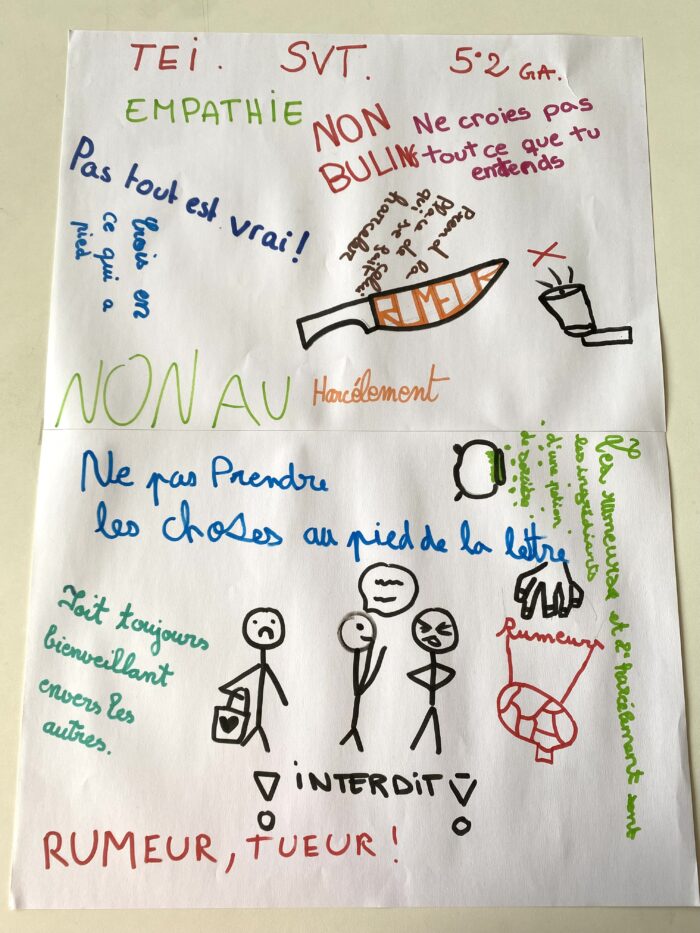 TEI. SVT. 5°2 GA.
EMPATHIE
NON
BULING
Ne croies pas
tout ce que tu
entends
Pas tout est vrai!
Crois en
ce qui a
pied
Prend la
place de celui
qui se fait
harceler
RUMEUR
NON AU Harcélement
Ne pas Prendre
les choses au pied de la lettre
Les rumeurs et l'harcélement sont
les ingrédiants
d'une potion
de
Soit toujours
bienveillant
envers les
autres.
Rumeurs
INTERDIT
RUMEUR, TUEUR !